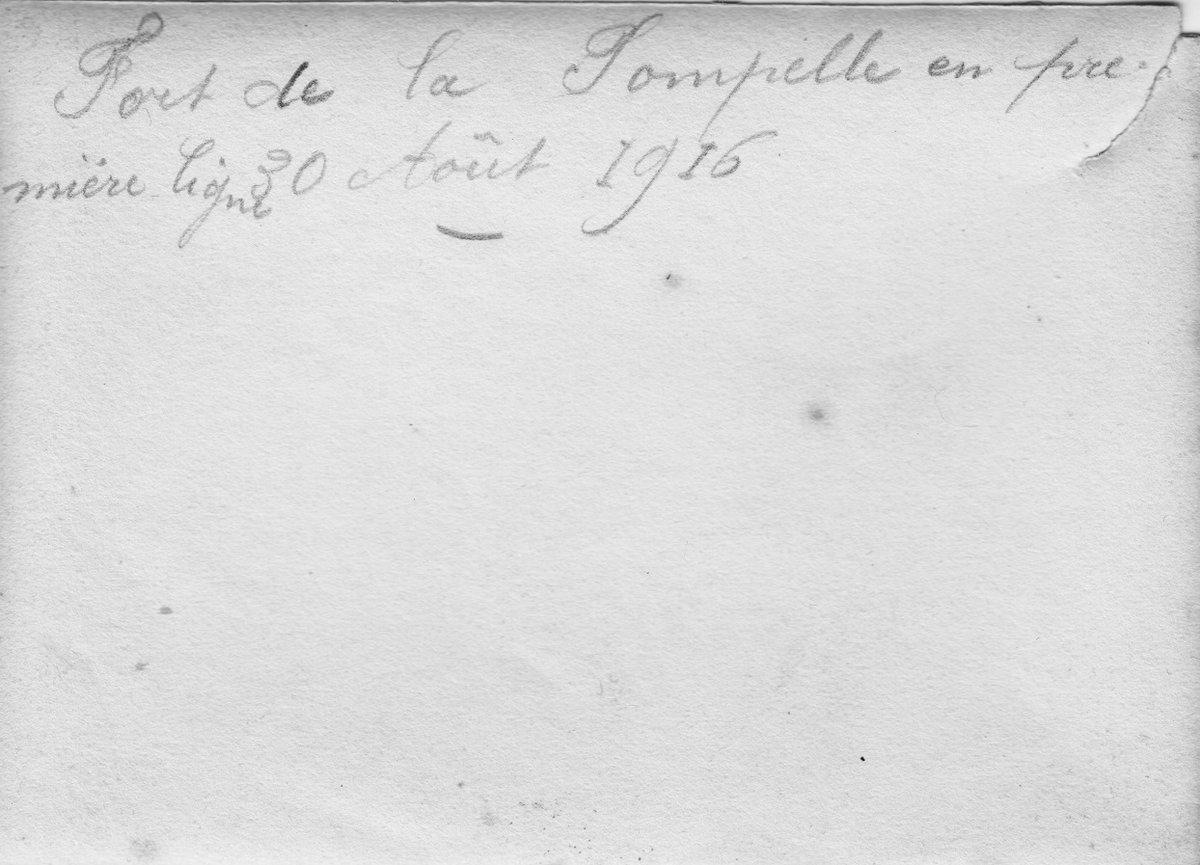 Fort de la Pompelle en pre-
mière ligne 30 Août 1916